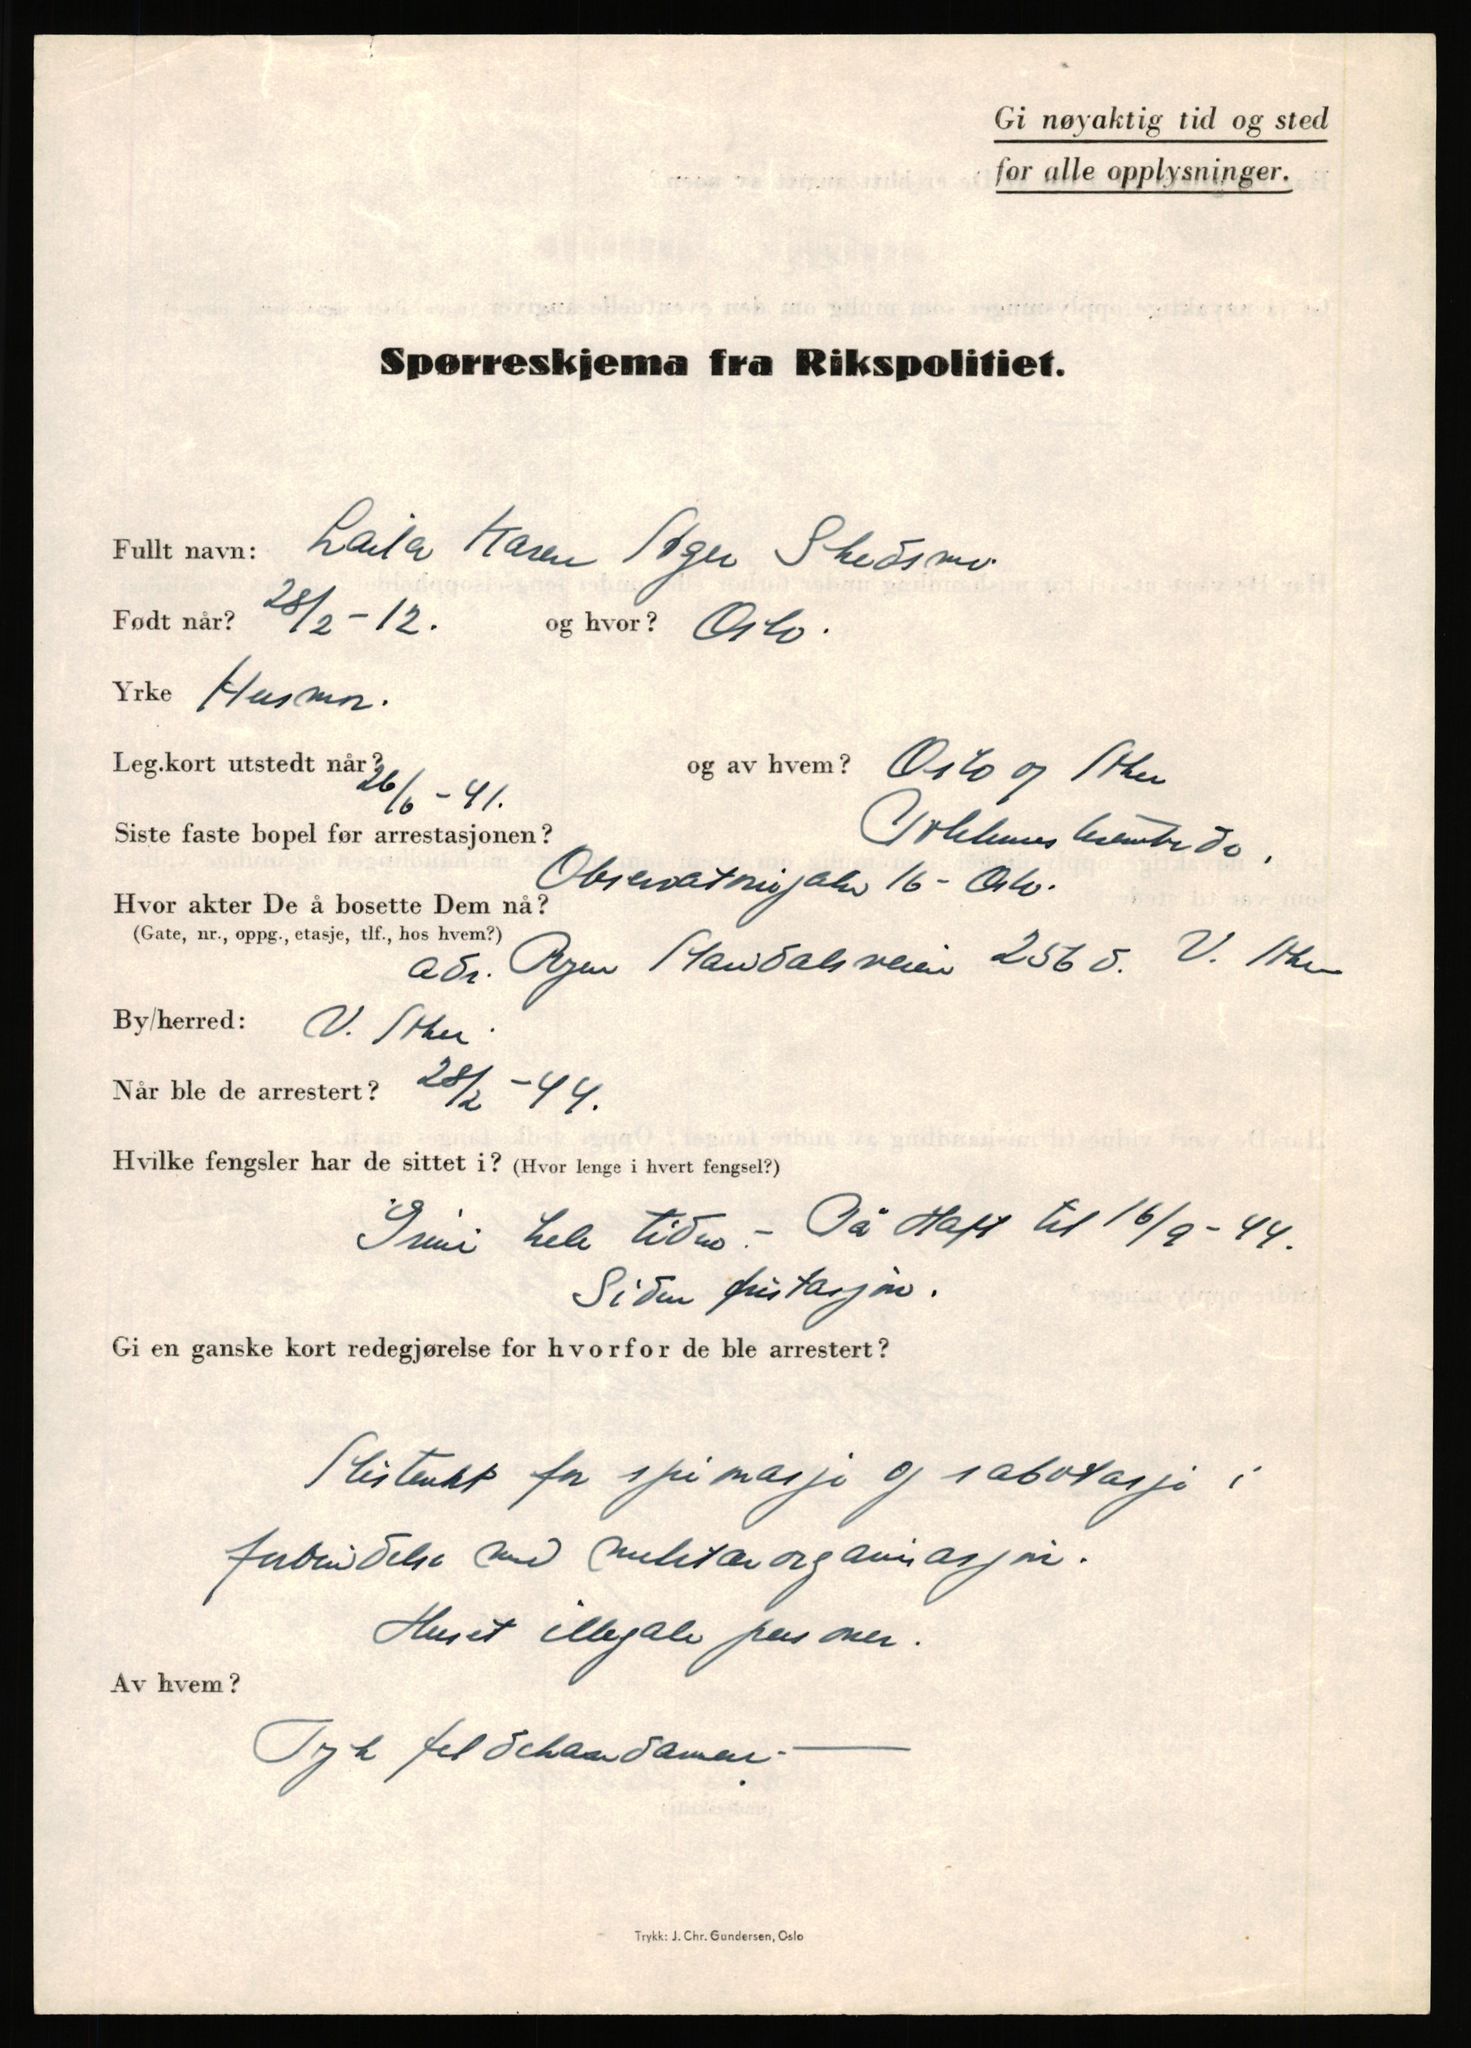 Gi nøyaktig tid og sted
for alle opplysninger.
Spørreskjema fra Rikspolitiet.
Fullt navn: Laila Karen Skedsmo
Født når? 28/2 - 12. og hvor? Oslo.
Yrke Husmor.
Leg.kort utstedt når? 26/6 - 41. og av hvem? Oslo og Aker
Siste faste bopel før arrestasjonen?
Observatoriegaten 16 - Oslo.
Hvor akter De å bosette Dem nå?
(Gate, nr., oppg., etasje, tlf., hos hvem?)
adr. Ryen 256 d. V. Aker
By/herred: V. Aker.
Når ble de arrestert? 28/2 - 44.
Hvilke fengsler har de sittet i? (Hvor lenge i hvert fengsel?)
Grini hele tiden. - På Haft til 16/9 - 44.
Siden
Gi en ganske kort redegjørelse for hvorfor de ble arrestert?
Mistenkt for spionasje og sabotasje i
forbindelse med militærorganisasjon.
Huset illegale personer.
Av hvem?
Tysk
Trykk: J. Chr. Gundersen, Oslo